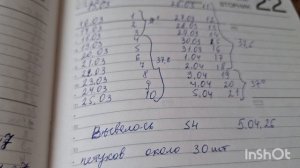 ВТОРНИК 22
15.03 26.03 11
16.03 1 27.03 12
17.03 2 28.03 13
18.03 3 29.03 14
19.03 4 30.03 15
20.03 5 31.03 16 37,6
21.03 6 37,8 1.04 17
22.03 7 2.04 18
23.03 8 3.04 19
24.03 9 4.04 20 37°
25.03 10 5.04 21
Вывелось 54 5.04.26
петухов около 30 шт
InShot